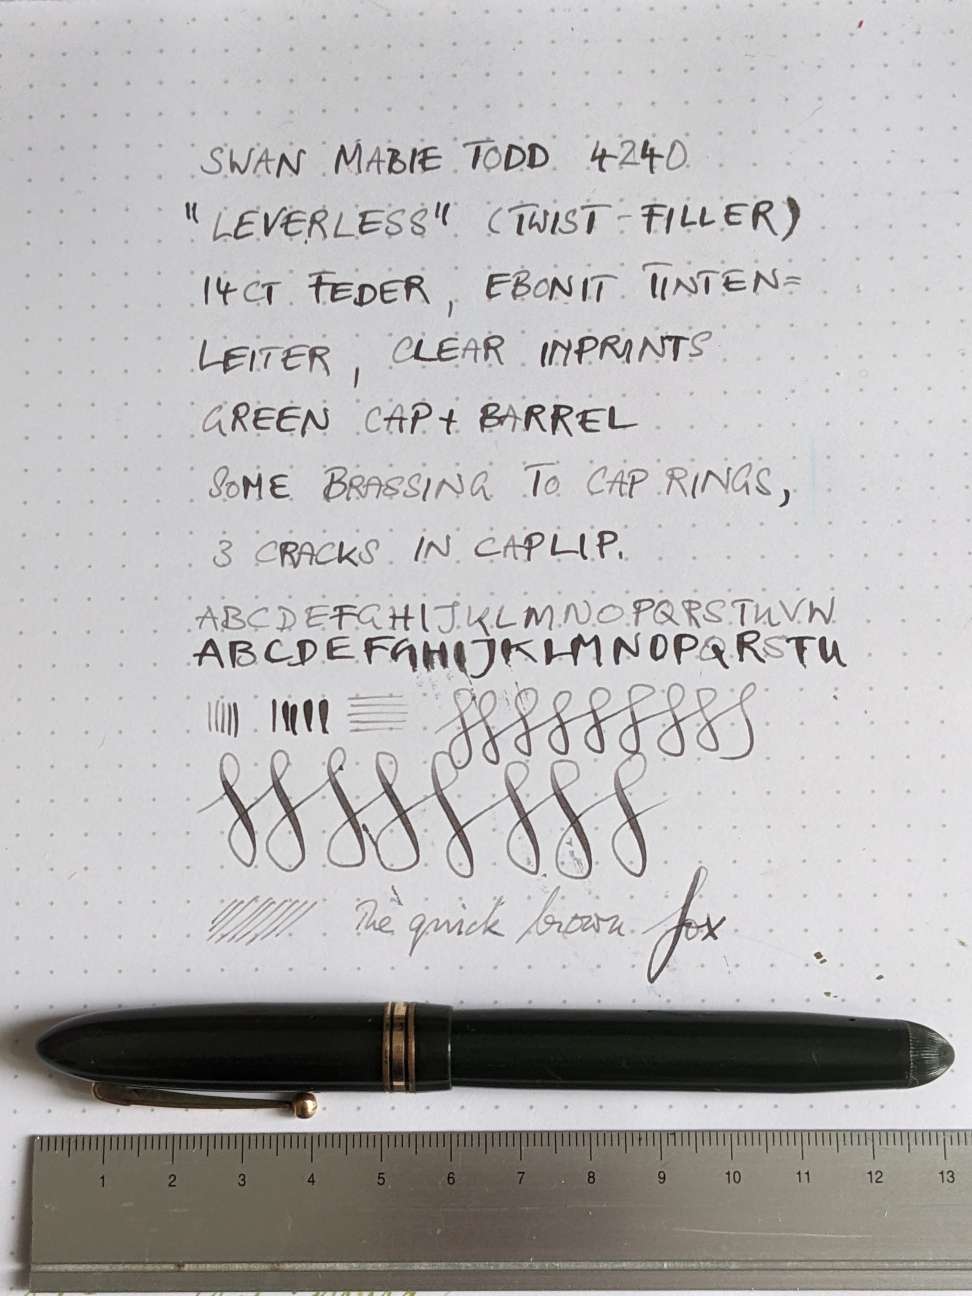 SWAN MABIE TODD 4240
"LEVERLESS" (TWIST-FILLER)
14CT FEDER, EBONIT TINTEN=
LEITER, CLEAR INPRINTS
GREEN CAP + BARREL
SOME BRASSING TO CAP RINGS,
3 CRACKS IN CAPLIP.
ABCDEFGHIJKLMNOPQRSTUVW
ABCDEFGHIJKLMNOPQRSTU
The quick brown fox
1 2 3 4 5 6 7 8 9 10 11 12 13